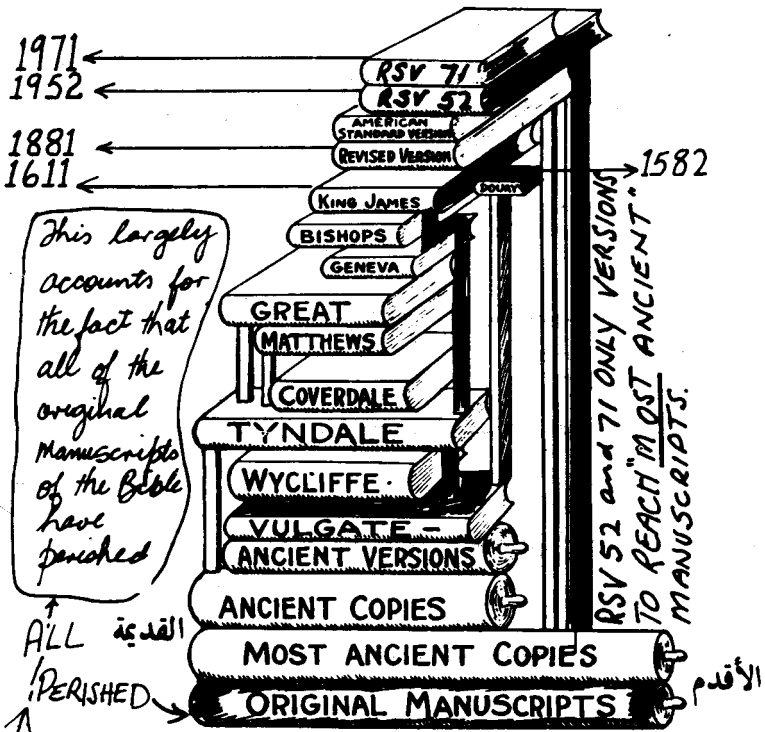 1971
1952
1881
1611
1582
RSV 71
RSV 52
AMERICAN
STANDARD VERSION
REVISED VERSION
KING JAMES
DOUAY
BISHOPS
GENEVA
GREAT
MATTHEWS
COVERDALE
TYNDALE
WYCLIFFE.
VULGATE -
ANCIENT VERSIONS
ANCIENT COPIES
MOST ANCIENT COPIES
ORIGINAL MANUSCRIPTS
This largely
accounts for
the fact that
all of the
original
Manuscripts
of the Bible
have
perished
ALL
PERISHED
القديمة
الأقدم
RSV 52 and 71 ONLY VERSIONS
TO REACH "MOST ANCIENT"
MANUSCRIPTS.